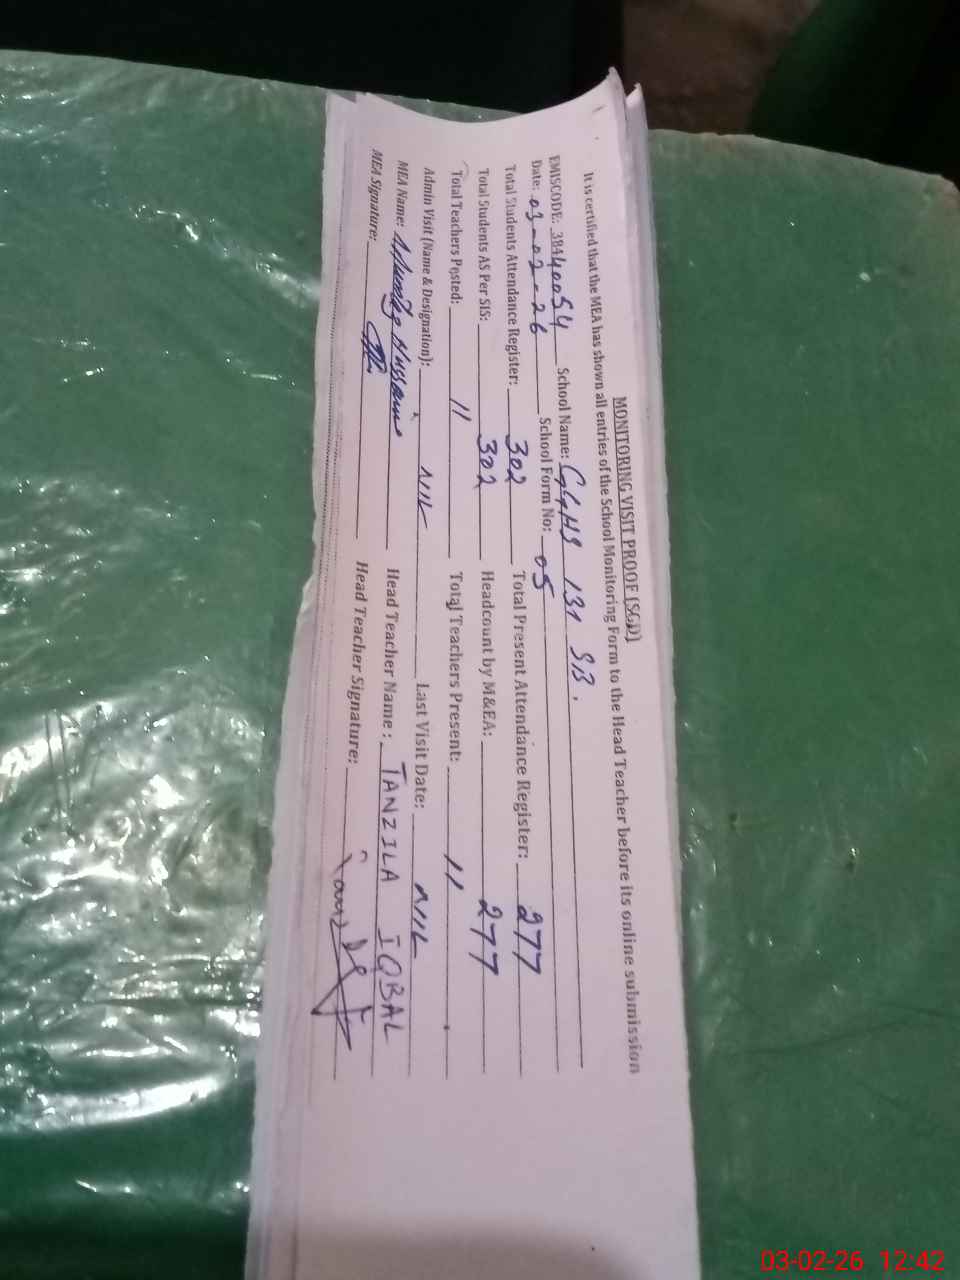 MONITORING VISIT PROOF (SGD)
It is certified that the MEA has shown all entries of the School Monitoring Form to the Head Teacher before its online submission
EMISCODE: 38440054 School Name: GGHS 131 SB.
Date: 03-02-26 School Form No: 05
Total Students Attendance Register: 302 Total Present Attendance Register: 277
Total Students AS Per SIS: 302 Headcount by M&EA: 277
Total Teachers Posted: 11 Total Teachers Present: 11
Admin Visit (Name & Designation): NIL Last Visit Date: NIL
MEA Name: Hussain Head Teacher Name: TANZILA IQBAL
MEA Signature: Head Teacher Signature:
03-02-26 12:42